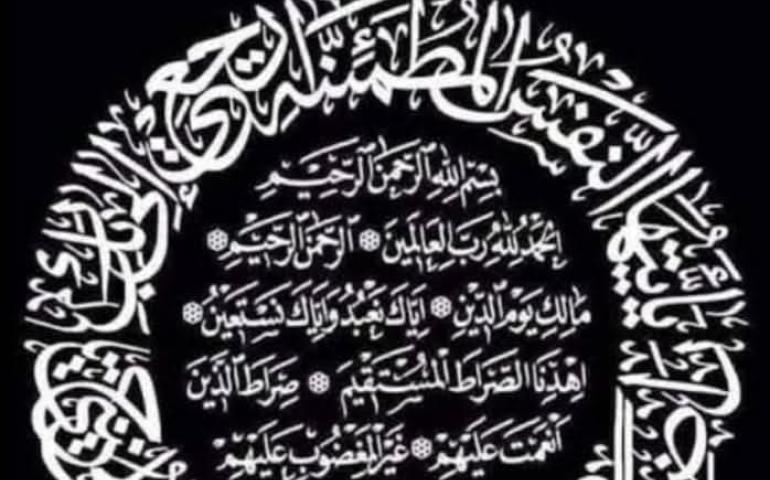 يَا أَيَّتُهَا النَّفْسُ الْمُطْمَئِنَّةُ ارْجِعِي إِلَى
بِسْمِ اللهِ الرَّحْمٰنِ الرَّحِيْمِ
اَلْحَمْدُ لِلّٰهِ رَبِّ الْعَالَمِينَ ۞ الرَّحْمٰنِ الرَّحِيْمِ ۞
مَالِكِ يَوْمِ الدِّيْنِ ۞ اِيَّاكَ نَعْبُدُ وَاِيَّاكَ نَسْتَعِيْنُ ۞
اِهْدِنَا الصِّرَاطَ الْمُسْتَقِيْمَ ۞ صِرَاطَ الَّذِيْنَ
اَنْعَمْتَ عَلَيْهِمْ ۞ غَيْرِ الْمَغْضُوْبِ عَلَيْهِمْ